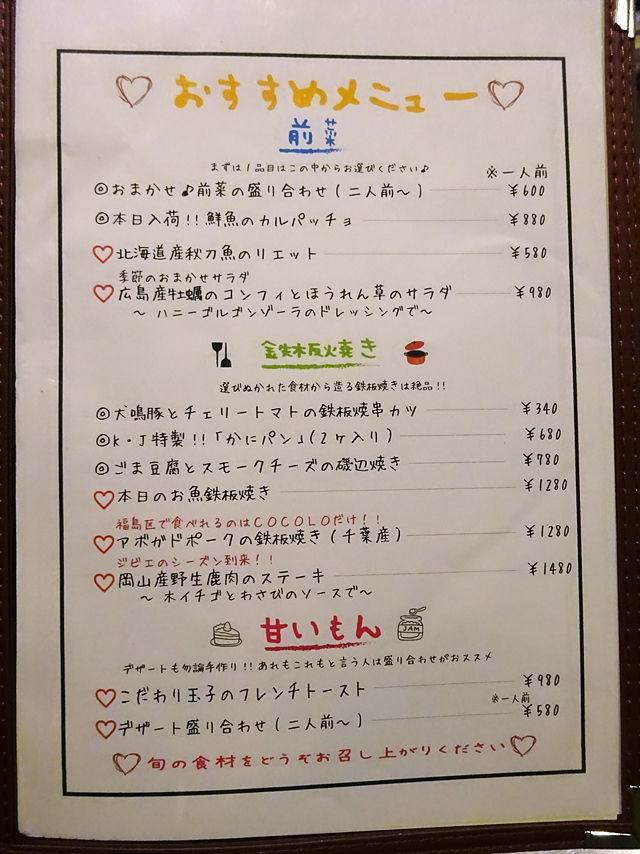 おすすめメニュー
前菜
まずは1品目はこの中からお選びください♪
※一人前
◎おまかせ♪前菜の盛り合わせ(二人前～) ¥600
◎本日入荷!!鮮魚のカルパッチョ ¥880
♡北海道産秋刀魚のリエット ¥580
季節のおまかせサラダ
♡広島産牡蠣のコンフィとほうれん草のサラダ ¥980
～ハニーゴルゴンゾーラのドレッシングで～
鉄板焼き
選びぬかれた食材から造る鉄板焼きは絶品!!
◎犬鳴豚とチェリートマトの鉄板焼串カツ ¥340
◎K・J特製!!「かにパン」(2ヶ入り) ¥680
◎ごま豆腐とスモークチーズの磯辺焼き ¥780
♡本日のお魚鉄板焼き ¥1280
福島区で食べれるのはCOCOLOだけ!!
♡アボガドポークの鉄板焼き(千葉産) ¥1280
ジビエのシーズン到来!!
♡岡山産野生鹿肉のステーキ ¥1480
～木イチゴとわさびのソースで～
甘いもん
JAM
デザートも勿論手作り!!あれもこれもと言う人は盛り合わせがおススメ
♡こだわり玉子のフレンチトースト ¥980
※一人前
♡デザート盛り合わせ(二人前～) ¥580
♡旬の食材をどうぞお召し上がりください♡